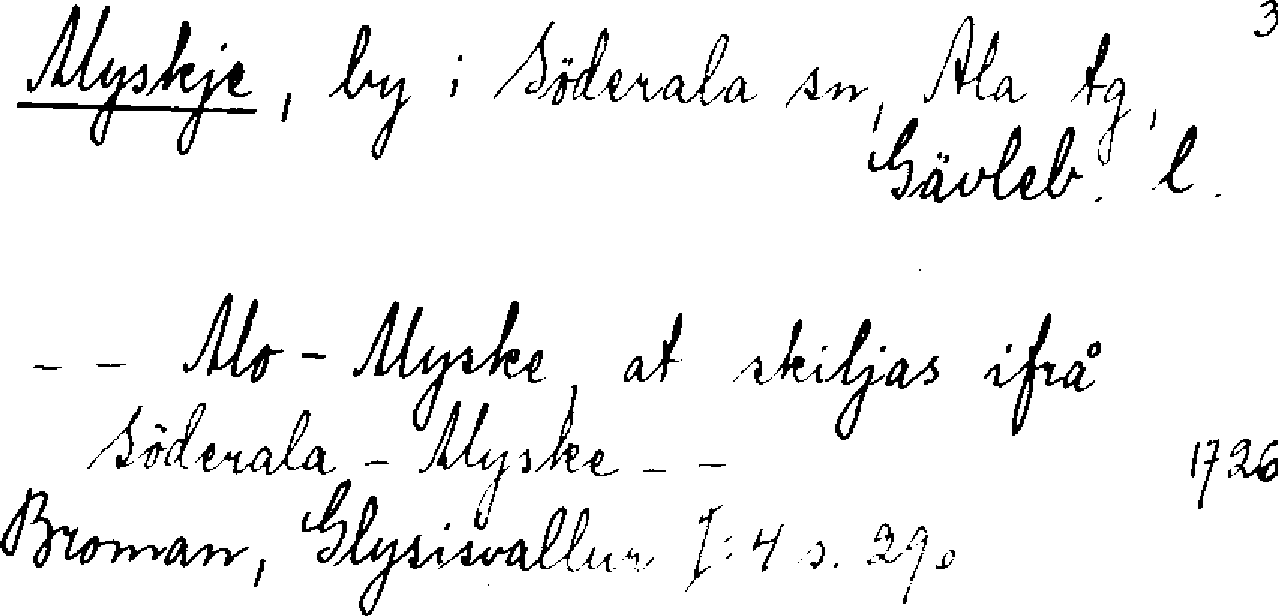 3
Myskje, by i Söderala sn, Ala tg,
Gävleb. l.
-- Mo-Myske, at skiljas ifrå
Söderala-Myske--
1726
Broman, Glysisvallur I:4 s. 290